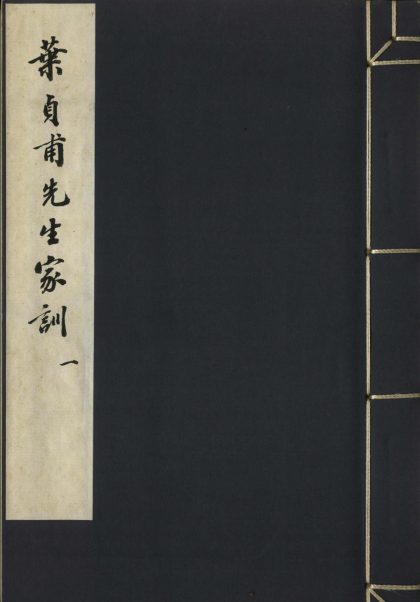 葉貞甫先生家訓 一